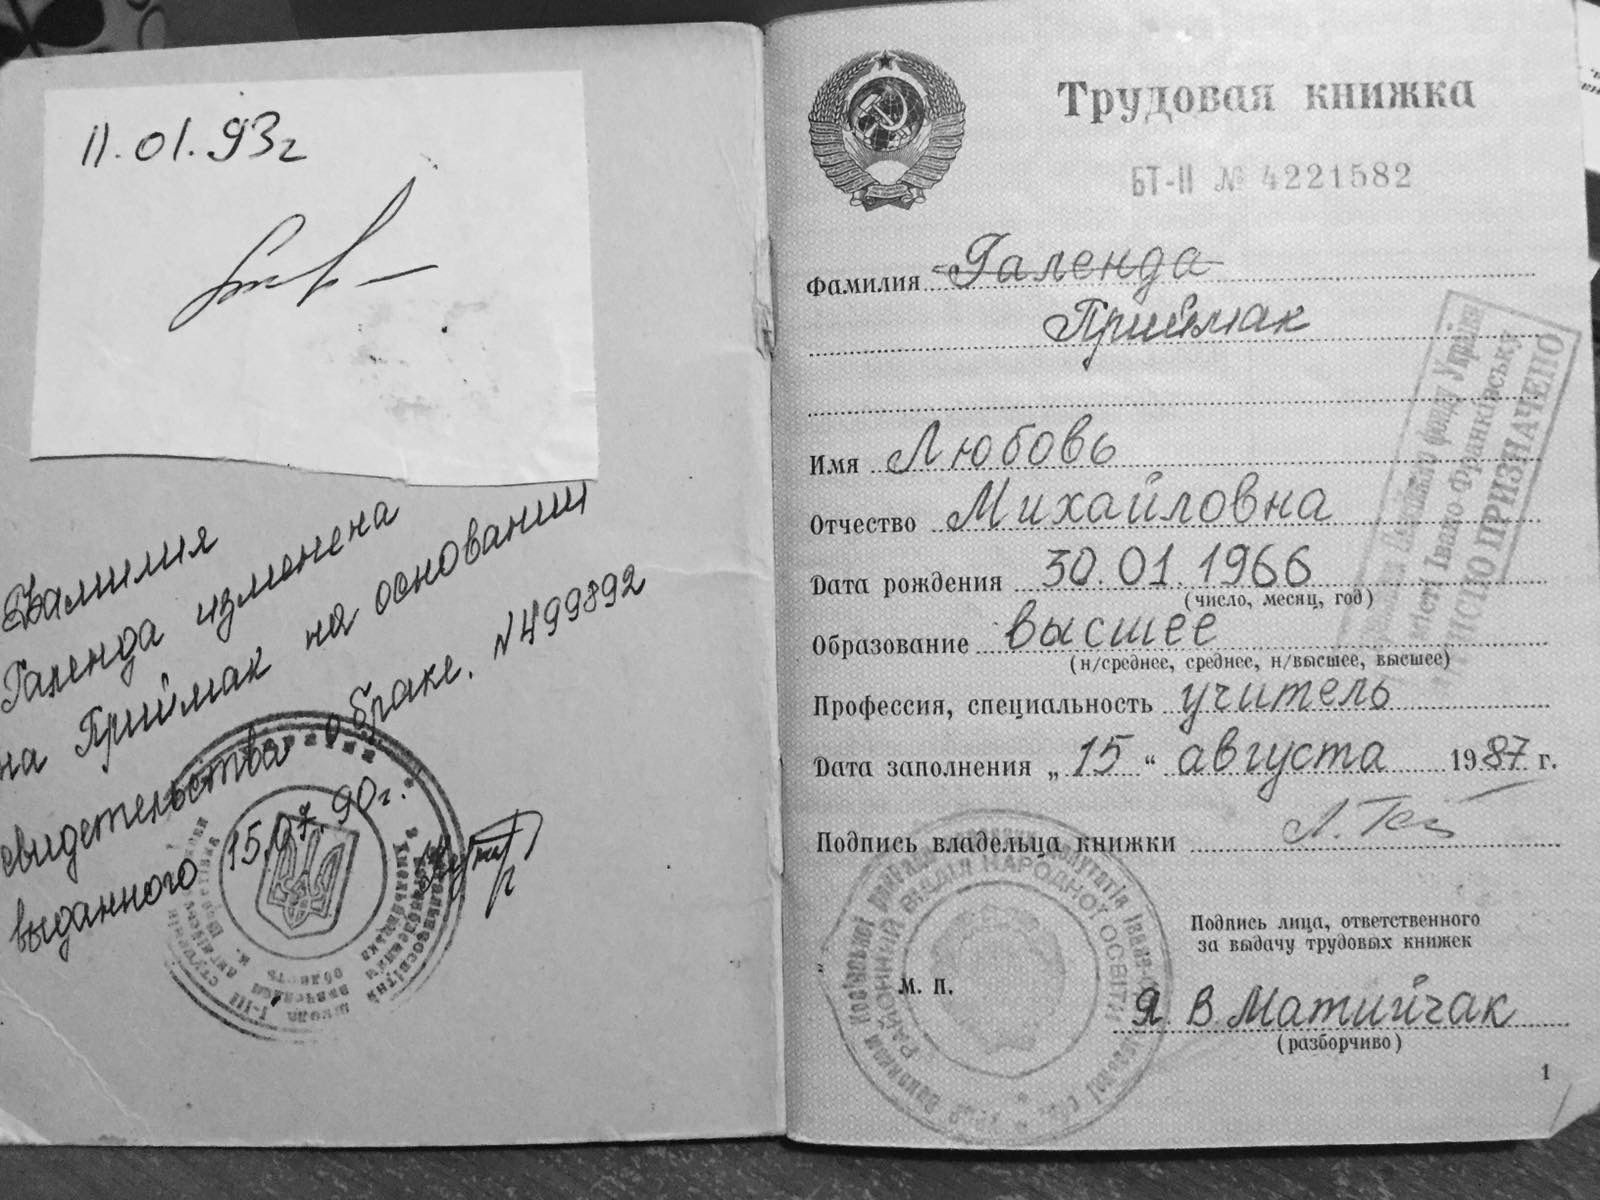 11.01.93г
Фамилия
Галенда изменена
на Приймак на основании
свидетельства о браке. №499892
выданного 15.07.90г.
Трудовая книжка
БТ-II № 4221582
Фамилия Галенда
Приймак
Имя Любовь
Отчество Михайловна
Дата рождения 30.01.1966
(число, месяц, год)
Образование высшее
(н/среднее, среднее, н/высшее, высшее)
Профессия, специальность учитель
Дата заполнения „15“ августа 1987 г.
Подпись владельца книжки
Подпись лица, ответственного
за выдачу трудовых книжек
М. П.
Я В. Матийчак
(разборчиво)
1
фонду України
місті Івано-Франківську
ПРИЗНАЧЕНО
РАЙОННИЙ ВІДДІЛ НАРОДНОЇ ОСВІТИ